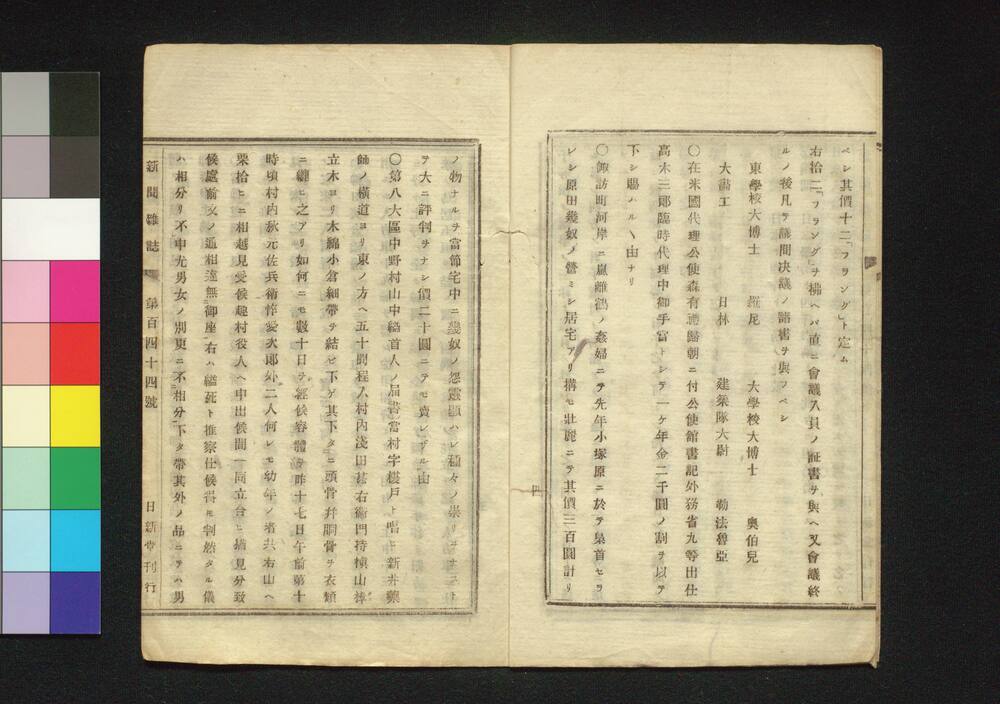 ベシ其價十二「フラング」ト定ム
右拾二「フラング」ヲ拂ヘバ直ニ會議入員ノ証書ヲ與ヘ又會議終
ルノ後凡ヲ議間决議ノ諸書ヲ與フベシ
東學校大博士 羅尼 大學校大博士 奥伯兒
大書工 日林 建築隊大尉 勒法魯亞
〇在米國代理公使森有禮歸朝ニ付公使館書記外務省九等出仕
高木三郎臨時代理中御手當トシテ一ケ年金二千圓ノ割ヲ以テ
下シ賜ハルヽ由ナリ
〇諏訪町河岸ニ嵐離鶴ノ姦婦ニテ先年小塚原ニ於テ梟首セラ
レシ原田幾奴ノ營ミシ居宅アリ搆モ壯麗ニテ其價三百圓計リ
四
ノ物ナルヲ當節宅中ニ幾奴ノ怨靈顯ハレ種々ノ祟リヲナスト
ヲ大ニ評判ヲナシ價二十圓ニテモ賣レザル由
〇第八大區中野村山中縊首人ノ屆書當村字櫻戸ト唱ヒ新井藥
師ノ横道ヨリ東ノ方ヘ五十間程入村内淺田甚右衛門持檜山樟
立木ヨリ木綿小倉細帶ヲ結ビ下ゲ其下タニ頭骨并胴骨ヲ衣類
ニ纏ヒ之アリ如何ニモ數十日ヲ經候容體ヲ昨十七日午前第十
時頃村内秋元佐兵衛悴愛次郎外二人何レモ幼年ノ者共右山ヘ
栗拾ヒニ相越見受候趣村役人ヘ申出候間一同立合ヒ猶見分致
候處前文ノ通相違無御座右ハ縊死ト推察仕候得モ判然タル儀
ハ相分リ不申尤男女ノ別更ニ不相分下タ帶其外ノ品ニテハ男
新聞雜誌 第百四十四號 日新堂刊行